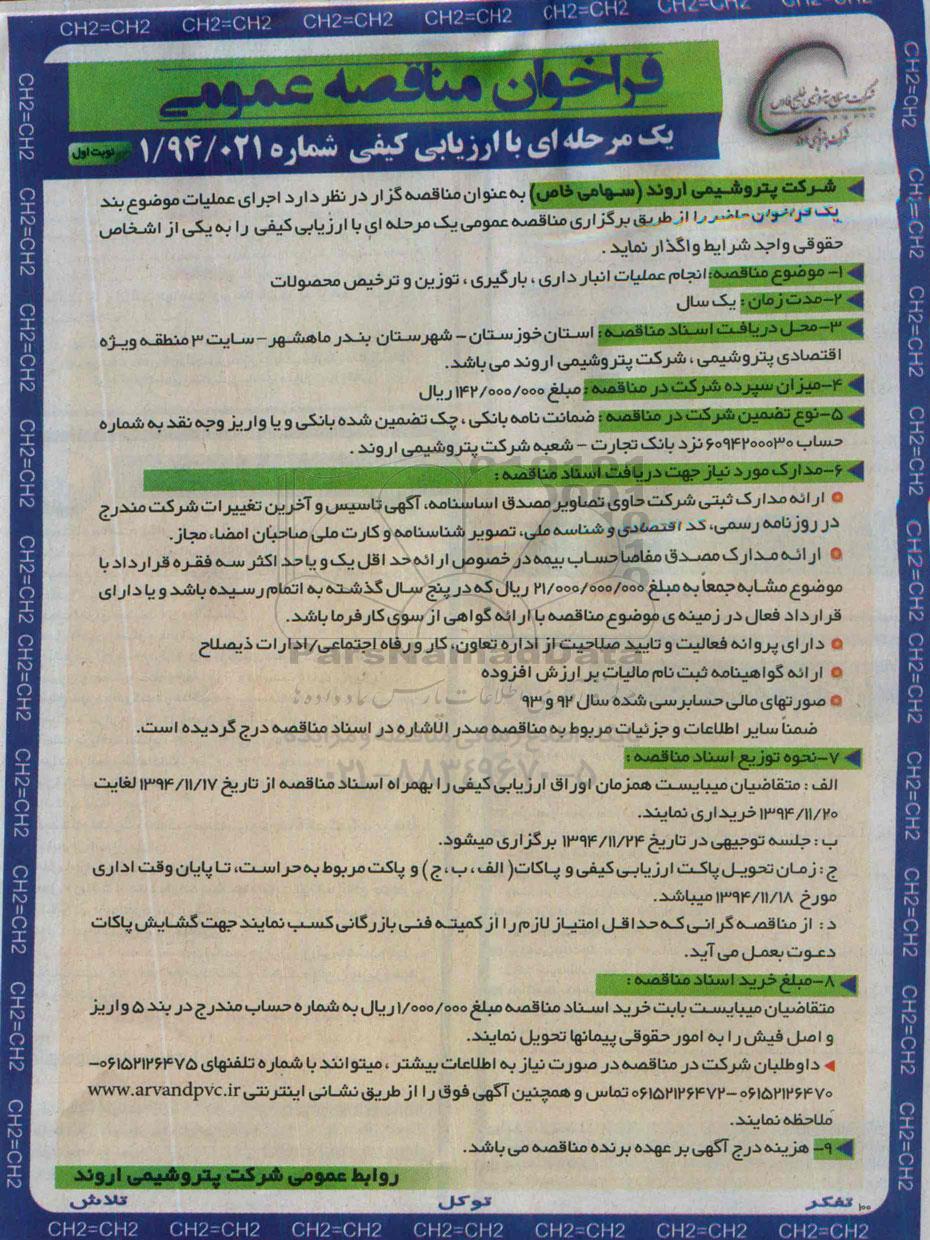 CH2=CH2 CH2=CH2 CH2=CH2 CH2=CH2 CH2=CH2 CH2=CH2 CH2=CH2
شرکت صنایع پتروشیمی خلیج فارس
فراخوان مناقصه عمومی
یک مرحله ای با ارزیابی کیفی شماره ۱/۹۴/۰۲۱
نوبت اول
شرکت پتروشیمی اروند (سهامی خاص) به عنوان مناقصه گزار در نظر دارد اجرای عملیات موضوع بند
یک فراخوان حاضر را از طریق برگزاری مناقصه عمومی یک مرحله ای با ارزیابی کیفی را به یکی از اشخاص
حقوقی واجد شرایط واگذار نماید .
۱- موضوع مناقصه: انجام عملیات انبار داری ، بارگیری ، توزین و ترخیص محصولات
۲-مدت زمان : یک سال
۳-محل دریافت اسناد مناقصه : استان خوزستان - شهرستان بندر ماهشهر- سایت ۳ منطقه ویژه
اقتصادی پتروشیمی ، شرکت پتروشیمی اروند می باشد.
۴-میزان سپرده شرکت در مناقصه : مبلغ ۱۴۲/۰۰۰/۰۰۰ ریال
۵-نوع تضمین شرکت در مناقصه : ضمانت نامه بانکی ، چک تضمین شده بانکی و یا واریز وجه نقد به شماره
حساب ۶۰۹۴۲۰۰۰۳۰ نزد بانک تجارت - شعبه شرکت پتروشیمی اروند .
۶-مدارک مورد نیاز جهت دریافت اسناد مناقصه :
ارائه مدارک ثبتی شرکت حاوی تصاویر مصدق اساسنامه، آگهی تاسیس و آخرین تغییرات شرکت مندرج
در روزنامه رسمی، کد اقتصادی و شناسه ملی، تصویر شناسنامه و کارت ملی صاحبان امضاء مجاز.
ارائه مدارک مصدق مفاصا حساب بیمه در خصوص ارائه حد اقل یک و یا حد اکثر سه فقره قرارداد با
موضوع مشابه جمعاً به مبلغ ۲۱/۰۰۰/۰۰۰/۰۰۰ ریال که در پنج سال گذشته به اتمام رسیده باشد و یا دارای
قرارداد فعال در زمینه ی موضوع مناقصه با ارائه گواهی از سوی کارفرما باشد.
دارای پروانه فعالیت و تایید صلاحیت از اداره تعاون، کار و رفاه اجتماعی/ادارات ذیصلاح
ParsNamadData
ارائه گواهینامه ثبت نام مالیات بر ارزش افزوده
صورتهای مالی حسابرسی شده سال ۹۲ و ۹۳
ضمناً سایر اطلاعات و جزئیات مربوط به مناقصه صدر الاشاره در اسناد مناقصه درج گردیده است.
۰۲۱-۸۸۳۴۹۶۷۰-۵
۷-نحوه توزیع اسناد مناقصه :
الف : متقاضیان میبایست همزمان اوراق ارزیابی کیفی را بهمراه اسناد مناقصه از تاریخ ۱۳۹۴/۱۱/۱۷ لغایت
۱۳۹۴/۱۱/۲۰ خریداری نمایند.
ب : جلسه توجیهی در تاریخ ۱۳۹۴/۱۱/۲۴ برگزاری میشود.
ج : زمان تحویل پاکت ارزیابی کیفی و پاکات( الف، ب، ج) و پاکت مربوط به حراست، تا پایان وقت اداری
مورخ ۱۳۹۴/۱۱/۱۸ میباشد.
د : از مناقصه گرانی که حداقل امتیاز لازم را از کمیته فنی بازرگانی کسب نمایند جهت گشایش پاکات
دعوت بعمل می آید.
۸-مبلغ خرید اسناد مناقصه :
متقاضیان میبایست بابت خرید اسناد مناقصه مبلغ ۱/۰۰۰/۰۰۰ ریال به شماره حساب مندرج در بند ۵ واریز
و اصل فیش را به امور حقوقی پیمانها تحویل نمایند.
داوطلبان شرکت در مناقصه در صورت نیاز به اطلاعات بیشتر ، میتوانند با شماره تلفنهای ۰۶۱۵۲۱۲۶۴۷۵-
۰۶۱۵۲۱۲۶۴۷۰ -۰۶۱۵۲۱۲۶۴۷۲ تماس و همچنین آگهی فوق را از طریق نشانی اینترنتی www.arvandpvc.ir
ملاحظه نمایند.
۹- هزینه درج آگهی بر عهده برنده مناقصه می باشد.
روابط عمومی شرکت پتروشیمی اروند
۱۰۰ تفکر توکل تلاش
CH2=CH2 CH2=CH2 CH2=CH2 CH2=CH2 CH2=CH2 CH2=CH2 CH2=CH2